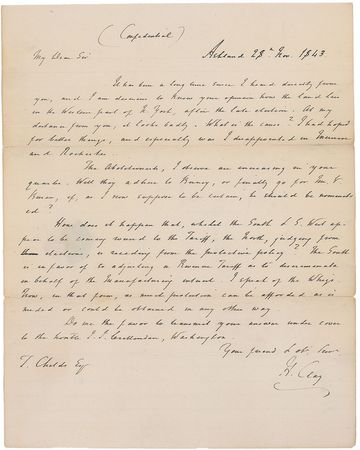 (Confidential)
My Dear Sir Ashland 28h Nov. 1843
It has been a long time since I heard directly from
you, and I am desirous to know your opinion how the land lies
in the Western part of N. York, after the late election. At my
distance from you, it looks badly. What is the cause? I had hoped
for better things, and especially was I disappointed in Monroe
and Rochester.
The Abolitionists, I observe are increasing in your
quarter. Will they adhere to Birney, or finally go for Mr. V.
Buren, if, as I now suppose to be certain, he should be nominat-
ed?
How does it happen that, whilst the South & S. West ap-
pear to be coming round to the Tariff, the North, judging from
elections, is receding from the protective policy? The South
is in favor of so adjusting a Revenue Tariff as to discriminate
in behalf of the Manufacturing interest. I speak of the Whigs.
Now, in that form, as much protection can be afforded as is
needed or could be obtained in any other way.
Do me the favor to transmit your answer under cover
to the Honble J. J. Crittenden, Washington.
Your friend & ob. Serv
H. Clay
T. Childs Esq